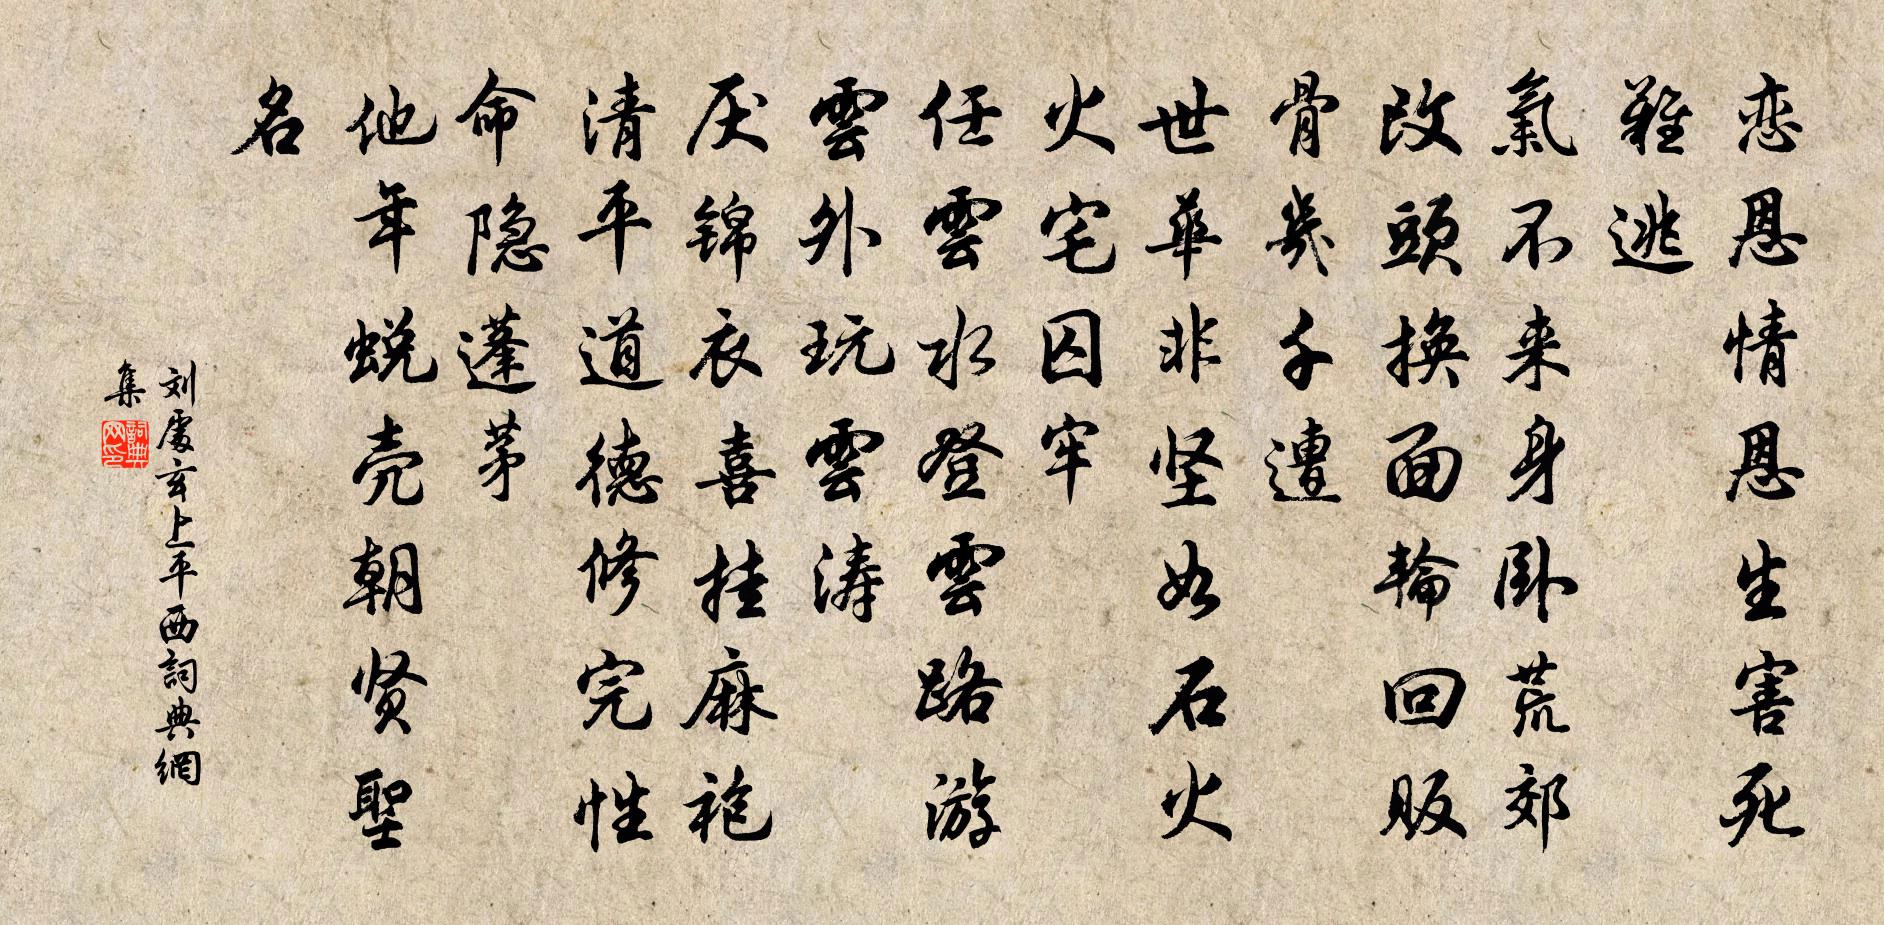 恋恩情恩生害死
難逃
氣不来身卧荒郊
改頭換面輪回販
骨幾千遭
世華非坚如石火
火宅囚牢
任雲水登雲路游
雲外玩雲涛
厌锦衣喜挂麻袍
清平道德修完性
命隐蓬茅
他年蜕壳朝贤聖
名
刘處玄上平西詞典網
集
詞典网印